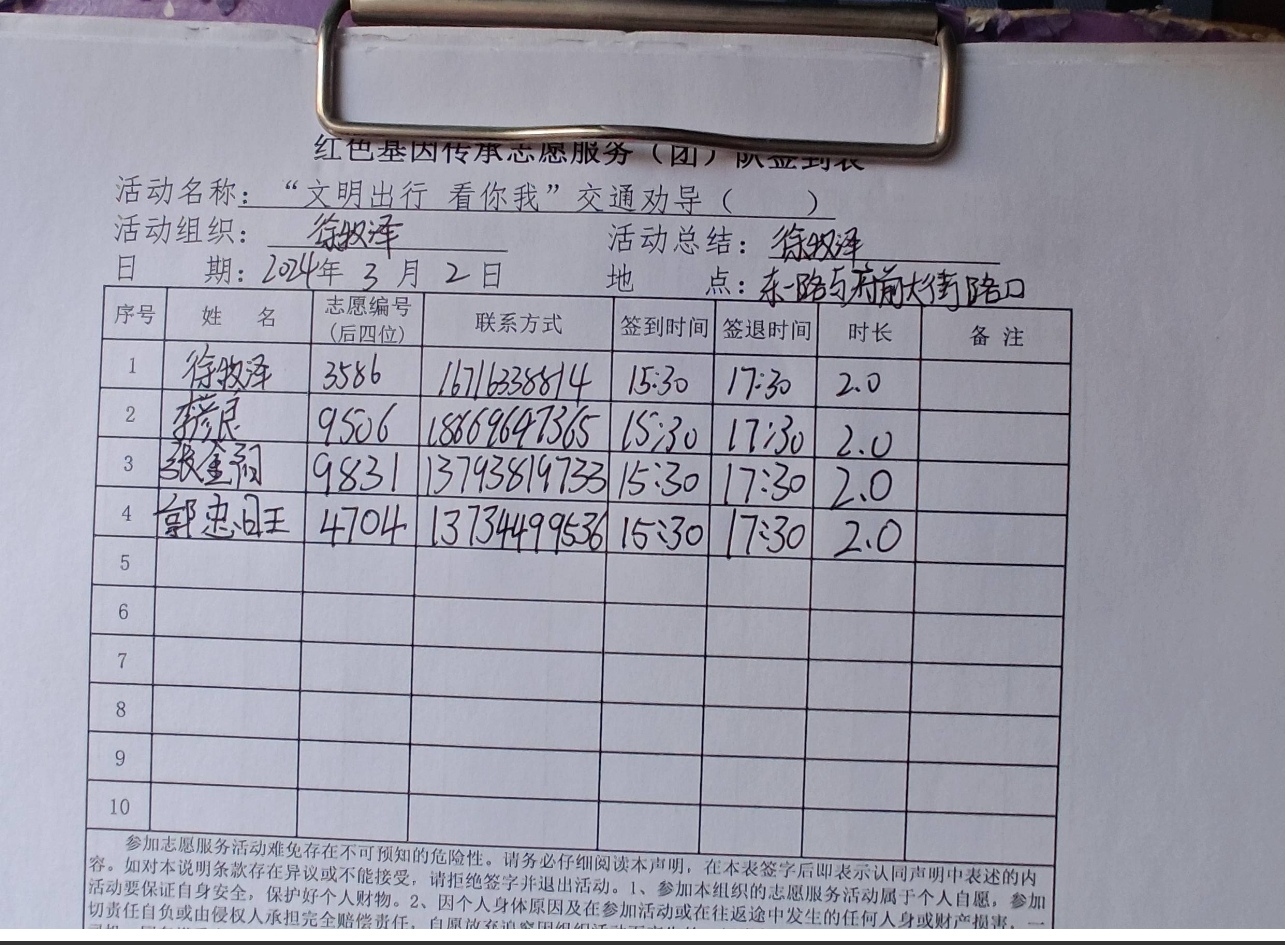 红色基因传承志愿服务（团）队签到表
活动名称：“文明出行 看你我”交通劝导（ ）
活动组织：徐牧泽 活动总结：徐牧泽
日 期：2024年3月2日 地 点：东一路与府前大街路口
序号 姓 名 志愿编号（后四位） 联系方式 签到时间 签退时间 时长 备注
1 徐牧泽 3586 16716338814 15:30 17:30 2.0
2 李彦良 9506 18869647365 15:30 17:30 2.0
3 张金 9831 13793819733 15:30 17:30 2.0
4 郭忠 4704 13734499536 15:30 17:30 2.0
5
6
7
8
9
10
参加志愿服务活动难免存在不可预知的危险性。请务必仔细阅读本声明，在本表签字后即表示认同声明中表述的内
容。如对本说明条款存在异议或不能接受，请拒绝签字并退出活动。1、参加本组织的志愿服务活动属于个人自愿，参加
活动要保证自身安全，保护好个人财物。2、因个人身体原因及在参加活动或在往返途中发生的任何人身或财产损害，一
切责任自负或由侵权人承担完全赔偿责任，自愿放弃追究因组织活动而产生的